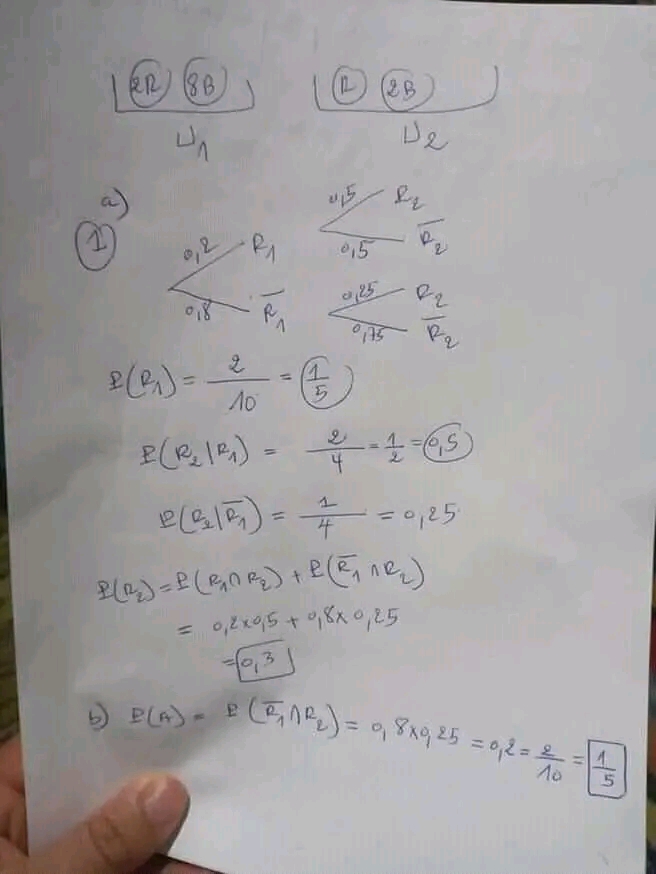 2R 8B R 2B
U1 U2
a)
1
0,2 R1
0,8 R̅1
0,5 R2
0,5 R̅2
0,25 R2
0,75 R̅2
P(R1) = 2/10 = 1/5
P(R2|R1) = 2/4 = 1/2 = 0,5
P(R2|R̅1) = 1/4 = 0,25
P(R2) = P(R1∩R2) + P(R̅1∩R2)
= 0,2x0,5 + 0,8x0,25
= 0,3
b) P(A) = P(R̅1∩R2) = 0,8x0,25 = 0,2 = 2/10 = 1/5